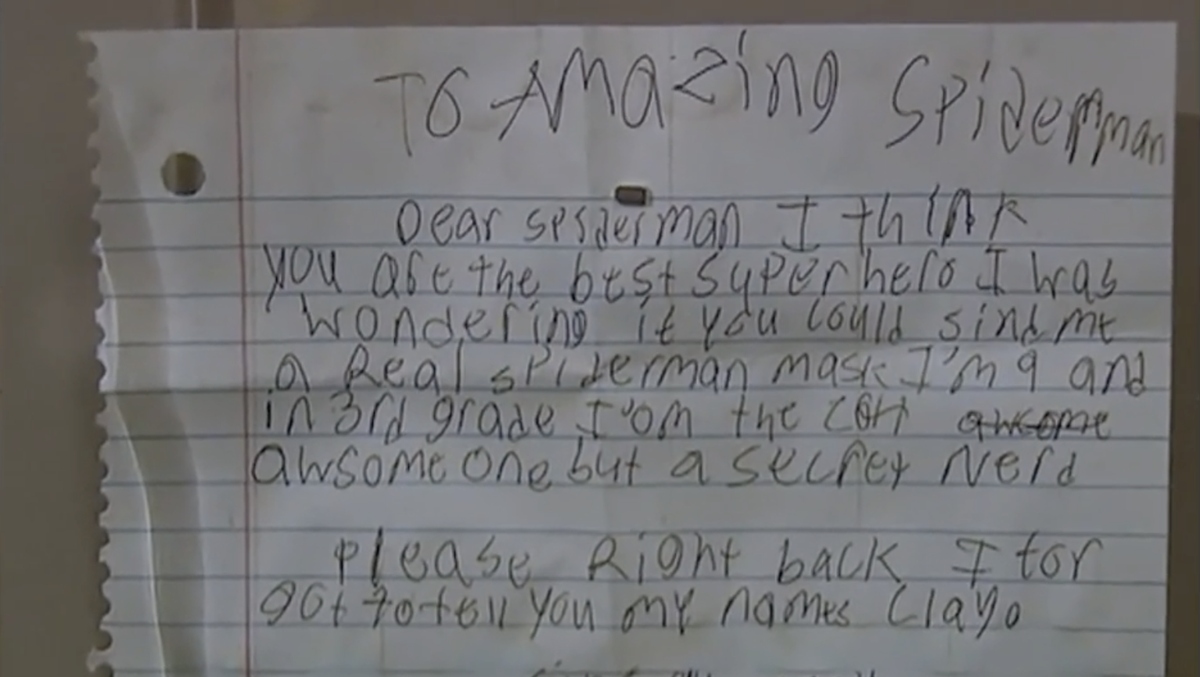 To Amazing Spiderman
Dear spiderman I think
you are the best super hero I was
wondering if you could sind me
a Real spiderman mask I'm 9 and
in 3rd grade I'm the awsome
awsome one but a secret Nerd
please Right back I for
got to tell you my names Clayo